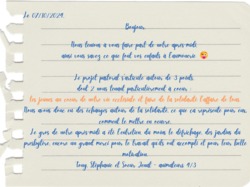 Le 02/10/2024.
Bonjour,
Nous tenions à vous faire part de notre après-midi
ainsi vous savez ce que font vos enfants à l'aumônerie 🥰
Le projet pastoral s'articule autour de 3 points
dont 2 nous tiennent particulièrement à coeur.
Les jeunes au coeur de notre vie ecclésiale et faire de la solidarité l'affaire de tous
Nous avons donc eu des échanges autour de la solidarité, ce que ça représente pour eux,
comment la mettre en oeuvre.
Le gros de notre après-midi a été l'entretien du mois le défrichage, des jardins du
presbytère, encore un grand merci pour le travail qu'ils ont accompli et pour leur belle
motivation.
Tony, Stéphanie et Soeur Jeanet - animateurs 4/3